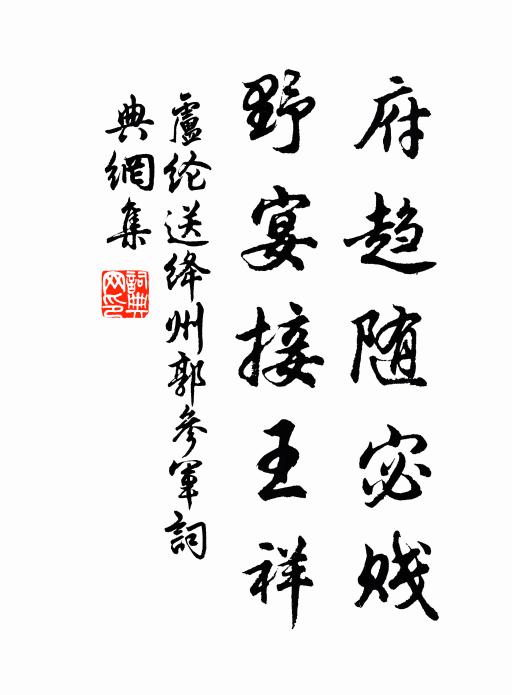 府趋随宓贱
野宴接王祥
盧纶送绛州郭參軍詞
典網集
詞典網印